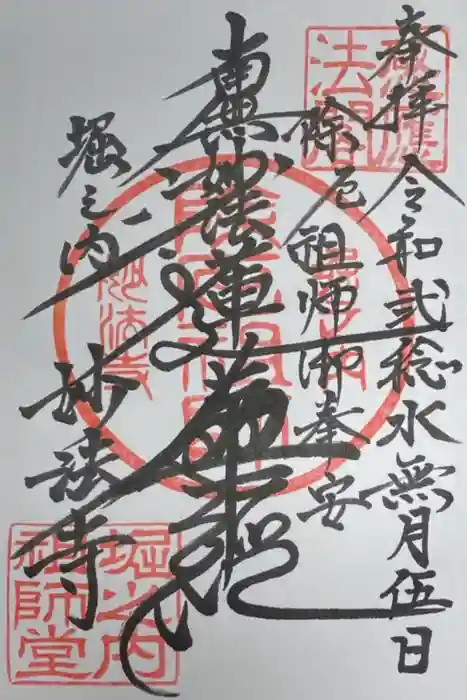 奉拝 令和弐稔水無月伍日
除厄祖師御奉安
南無妙法蓮華経
堀之内
妙法寺
除厄祖師
堀之内
妙法寺
堀之内
祖師堂